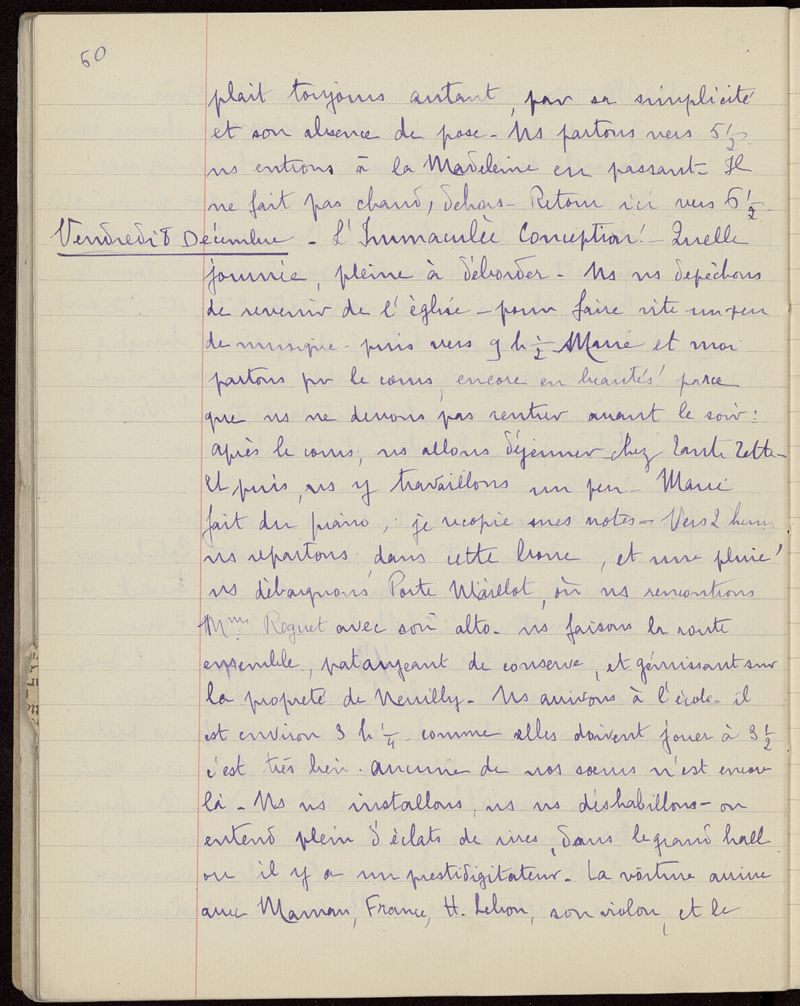 60
plait toujours autant, par sa simplicité
et son absence de pose - Ns partons vers 5 1/2 -
ns entrons à la Madeleine en passant - Il
ne fait pas chaud, dehors - Retour ici vers 6 1/2 -
Vendredi 8 Décembre - L'Immaculée Conception! - Quelle
journée, pleine à déborder - Ns ns depêchons
de revenir de l'église - pour faire vite un peu
de musique - puis vers 9 h 1/2 Marie et moi
partons pr le cours, encore en beautés! parce
que ns ne devons pas rentrer avant le soir:
après le cours, ns allons déjeuner chez Tante Zette -
et puis, ns y travaillons un peu - Marie
fait du piano, je recopie mes notes - Vers 2 heures
ns repartons dans cette boue, et une pluie!
ns débarquons Porte Maillot, où ns rencontrons
Mme Roguet avec son alto - ns faisons la route
ensemble, pataugeant de conserve, et gémissant sur
la propreté de Neuilly - Ns arrivons à l'école - il
est environ 3 h 1/4 - comme elles doivent jouer à 3 1/2
c'est très bien - aucune de nos sœurs n'est encore
là - Ns ns installons, ns ns déshabillons - on
entend plein d'éclats de rires, dans le grand hall
ou il y a un prestidigitateur - La voiture arrive
avec Maman, France, H. Lebon, son violon, et le